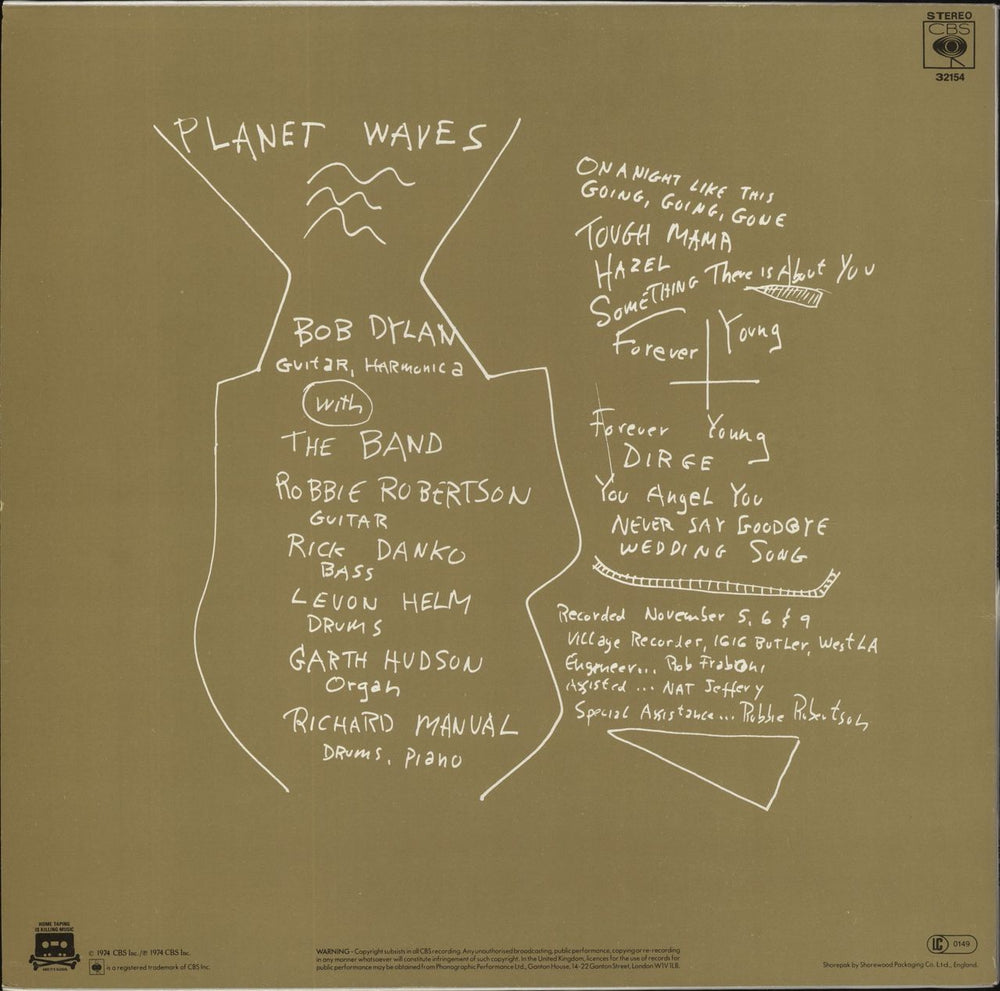 STEREO
CBS
32154
PLANET WAVES
BOB DYLAN
GUITAR, HARMONICA
with
THE BAND
ROBBIE ROBERTSON
GUITAR
RICK DANKO
BASS
LEVON HELM
DRUMS
GARTH HUDSON
Organ
RICHARD MANUAL
DRUMS, PIANO
ON A NIGHT LIKE THIS
GOING, GOING, GONE
TOUGH MAMA
HAZEL
SOMETHING There is About You
Forever Young
Forever Young
DIRGE
You Angel You
NEVER SAY GOODBYE
WEDDING SONG
Recorded November 5, 6 & 9
Village Recorder, 1616 BUTLER, West LA
Engineer... Rob Fraboni
Assisted ... NAT Jeffery
Special Assistance... Robbie Robertson
HOME TAPING
IS KILLING MUSIC
© 1974 CBS Inc./℗ 1974 CBS Inc.
is a registered trademark of CBS Inc.
WARNING - Copyright subsists in all CBS recording. Any unauthorised broadcasting, public performance, copying or re-recording
in any manner whatsoever will constitute infringement of such copyright. In the United Kingdom, licences for the use of records for
public performance may be obtained from Phonographic Performance Ltd., Ganton House, 14-22 Ganton Street, London W1V 1LB.
LC 0149
Shorepak by Shorewood Packaging Co. Ltd., England.